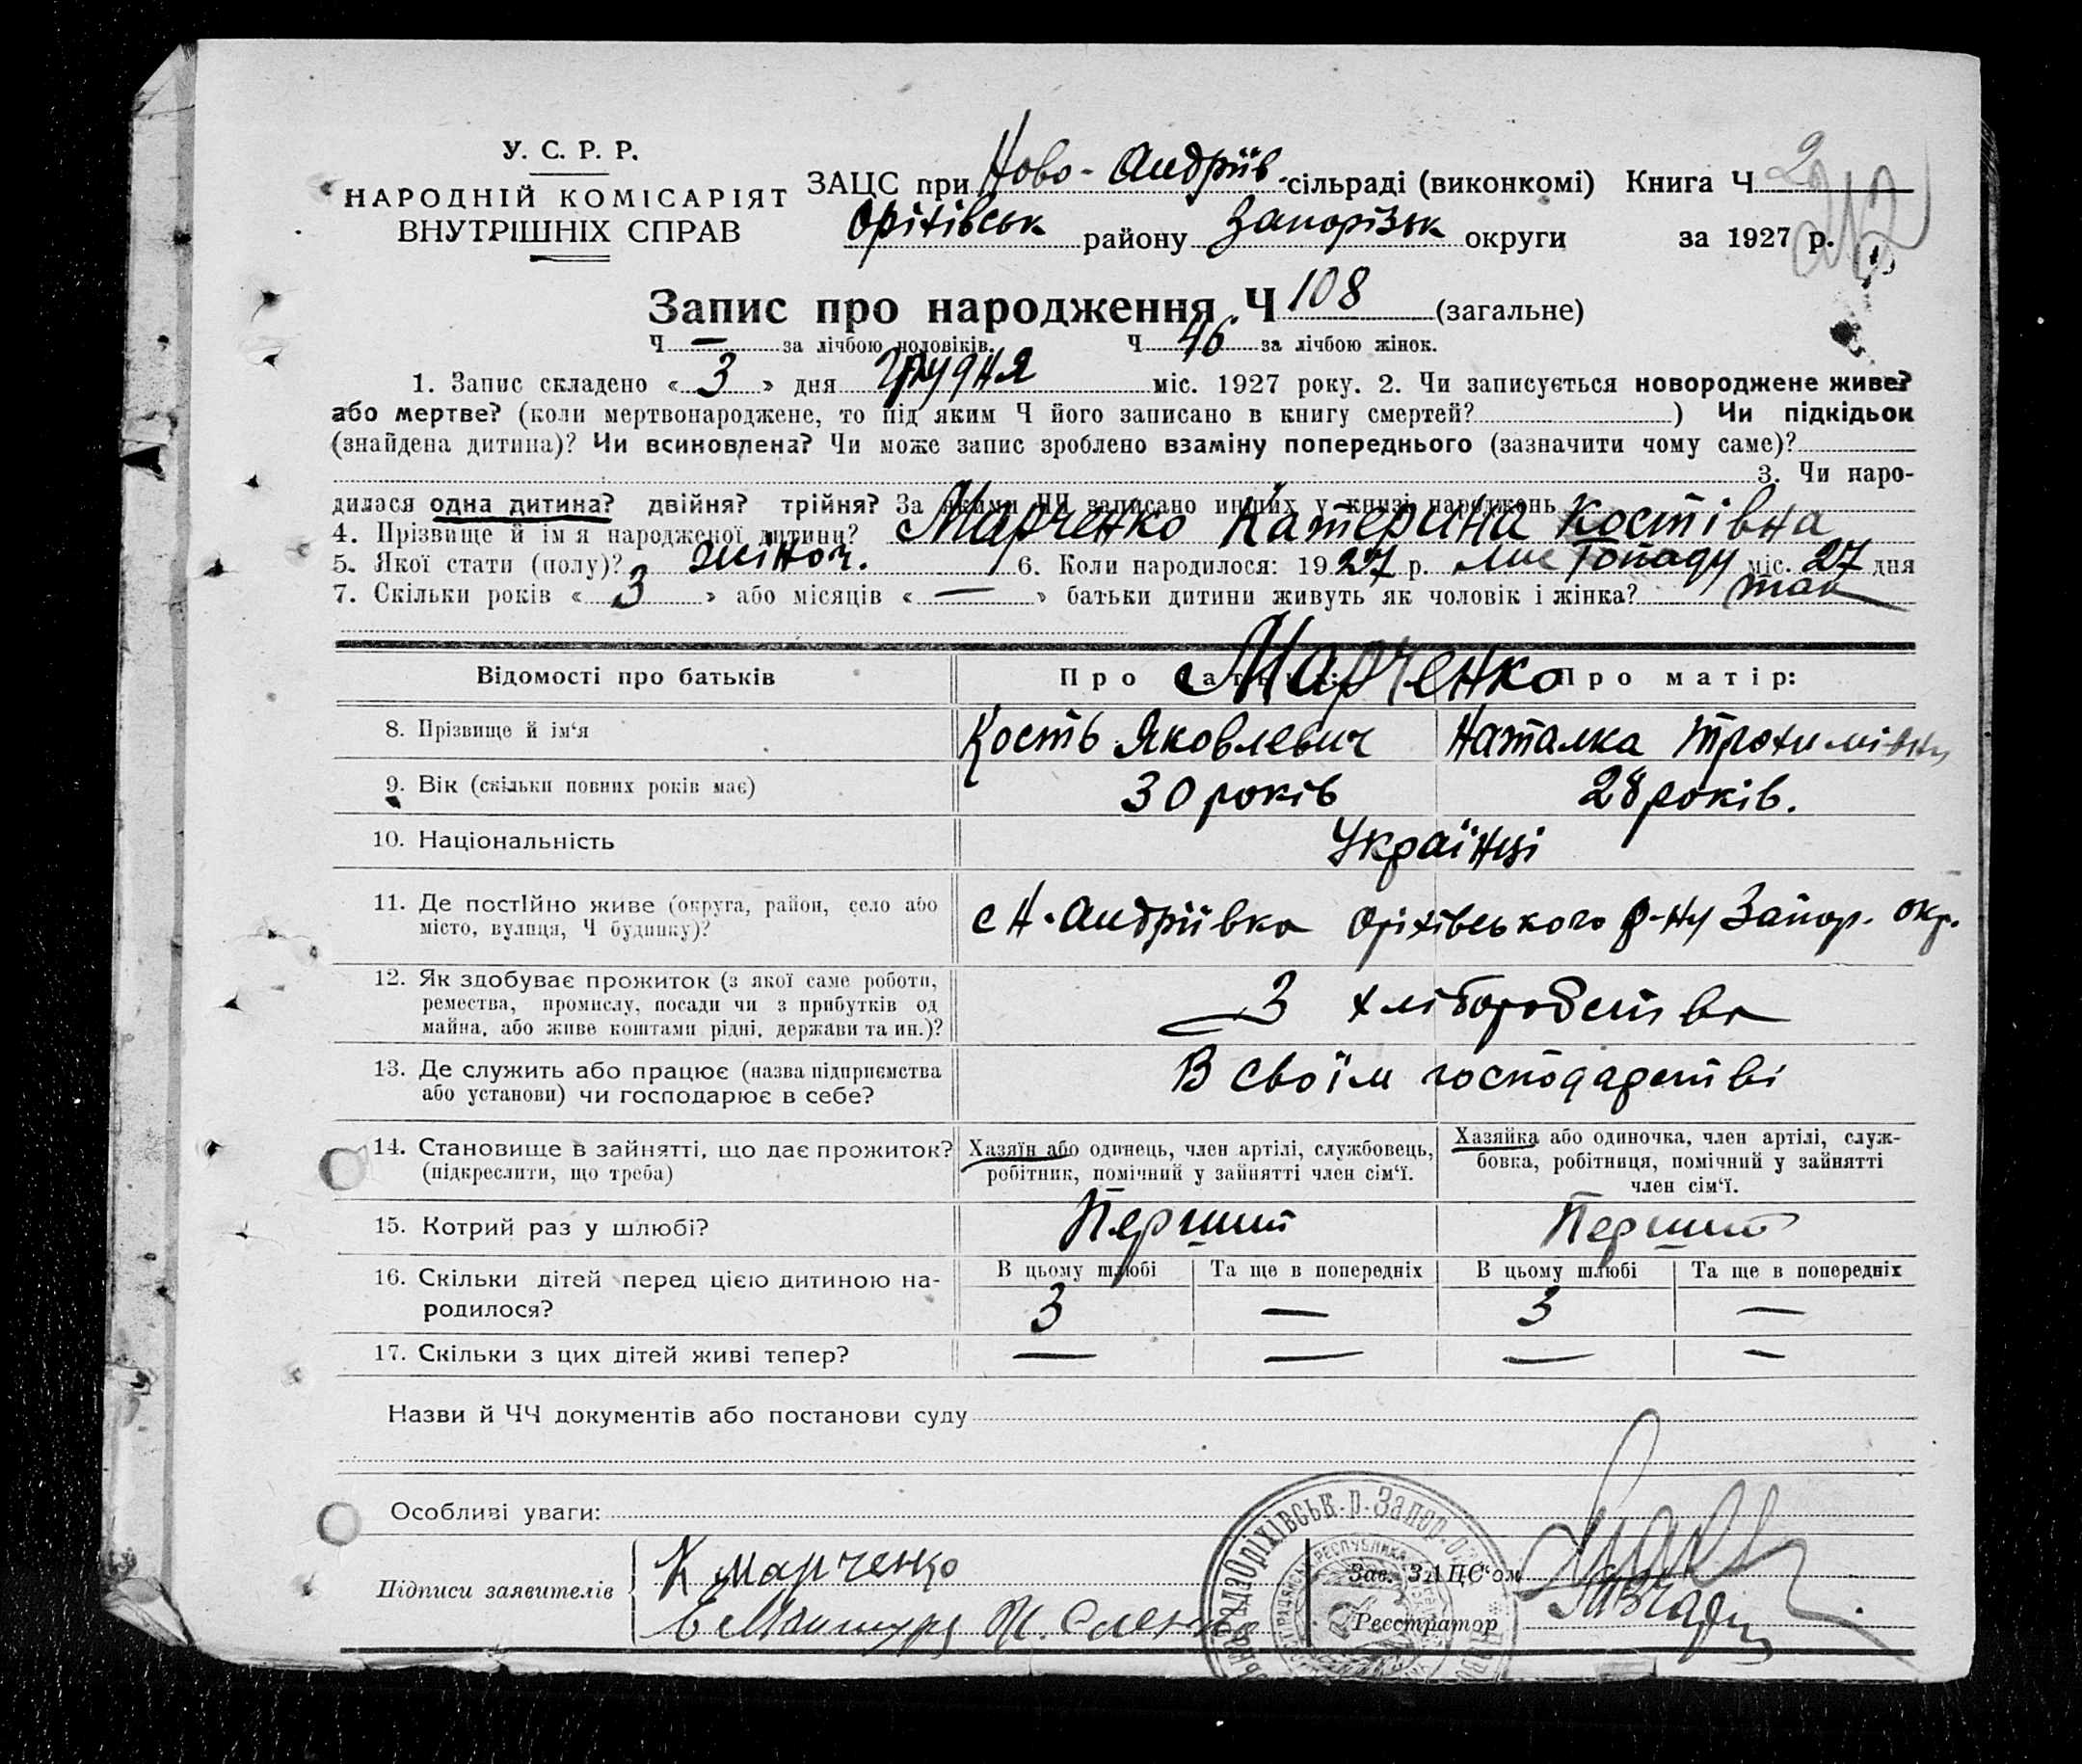 У. С. Р. Р.
НАРОДНІЙ КОМІСАРІЯТ
ВНУТРІШНІХ СПРАВ
ЗАЦС при Ново-Андріїв. сільраді (виконкомі) Книга Ч 2
Оріхівськ району Запорізьк округи за 1927 р.
Запис про народження Ч 108 (загальне)
Ч — за лічбою чоловіків. Ч 46 за лічбою жінок.
1. Запис складено « 3 » дня грудня міс. 1927 року. 2. Чи записується новороджене живе?
або мертве? (коли мертвонароджене, то під яким Ч його записано в книгу смертей? ) Чи підкідьок
(знайдена дитина)? Чи всиновлена? Чи може запис зроблено взаміну попереднього (зазначити чому саме)?
3. Чи наро-
дилася одна дитина? двійня? трійня? За якими ЧЧ записано инших у книзі народжень
4. Прізвище й ім'я народженої дитини? Марченко Катерина Костівна
5. Якої стати (полу)? жіноч. 6. Коли народилося: 1927 р. листопаду міс. 27 дня
7. Скільки років « 3 » або місяців « — » батьки дитини живуть як чоловік і жінка? так
Відомості про батьків Про батька: Про матір:
Марченко
8. Прізвище й ім'я Кость Яковлевич Наталка Трохимівна
9. Вік (скільки повних років має) 30 років 28 років.
10. Національність Українці
11. Де постійно живе (округа, район, село або
місто, вулиця, Ч будинку)?
с Н-Андріївка Оріхівського р-ну Запор. окр.
12. Як здобуває прожиток (з якої саме роботи,
ремества, промислу, посади чи з прибутків од
майна, або живе коштами рідні, держави та ин.)?
З хліборобства
13. Де служить або працює (назва підприємства
або установи) чи господарює в себе?
В своїм господарстві
14. Становище в зайнятті, що дає прожиток?
(підкреслити, що треба)
Хазяїн або одинець, член артілі, службовець,
робітник, помічний у зайнятті член сім'ї.
Хазяйка або одиночка, член артілі, служ-
бовка, робітниця, помічний у зайнятті
член сім'ї.
15. Котрий раз у шлюбі? Перший Перший
16. Скільки дітей перед цією дитиною на-
родилося?
В цьому шлюбі Та ще в попередніх В цьому шлюбі Та ще в попередніх
3 — 3 —
17. Скільки з цих дітей живі тепер? — — — —
Назви й ЧЧ документів або постанови суду
Особливі уваги:
Підписи заявителів
К Марченко
Зав. ЗАЦС'ом
Реєстратор
Оріхівськ. р. Запор.